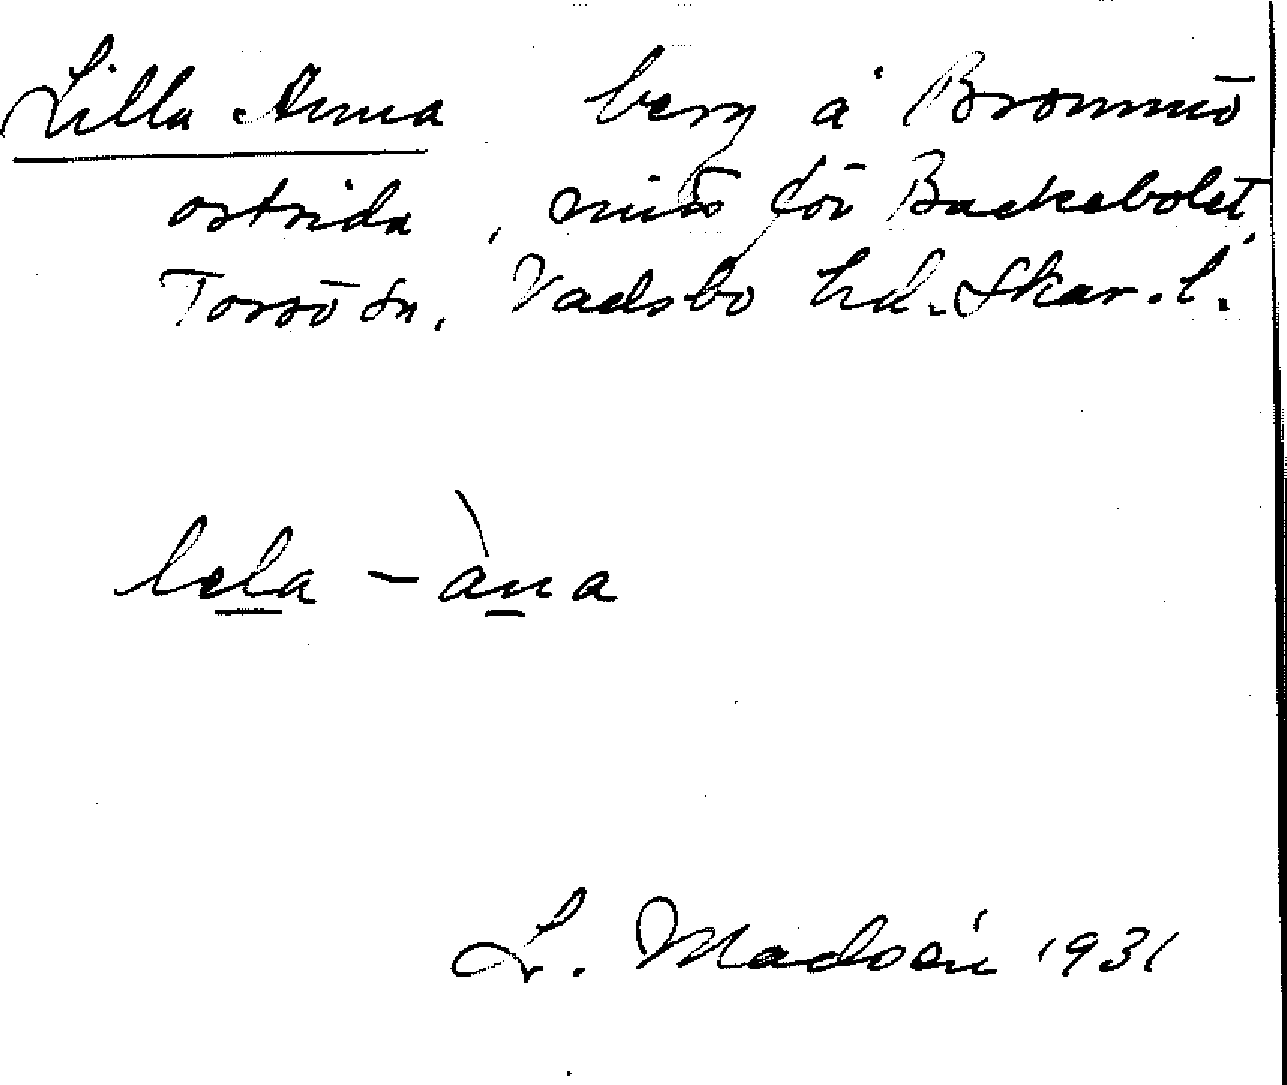 Lilla Anna berg å Brommö
ostsida, mitt för Backebolet,
Torsö sn. Vadsbo hd. Skar. l.
lela - àna
L. Madsén 1931